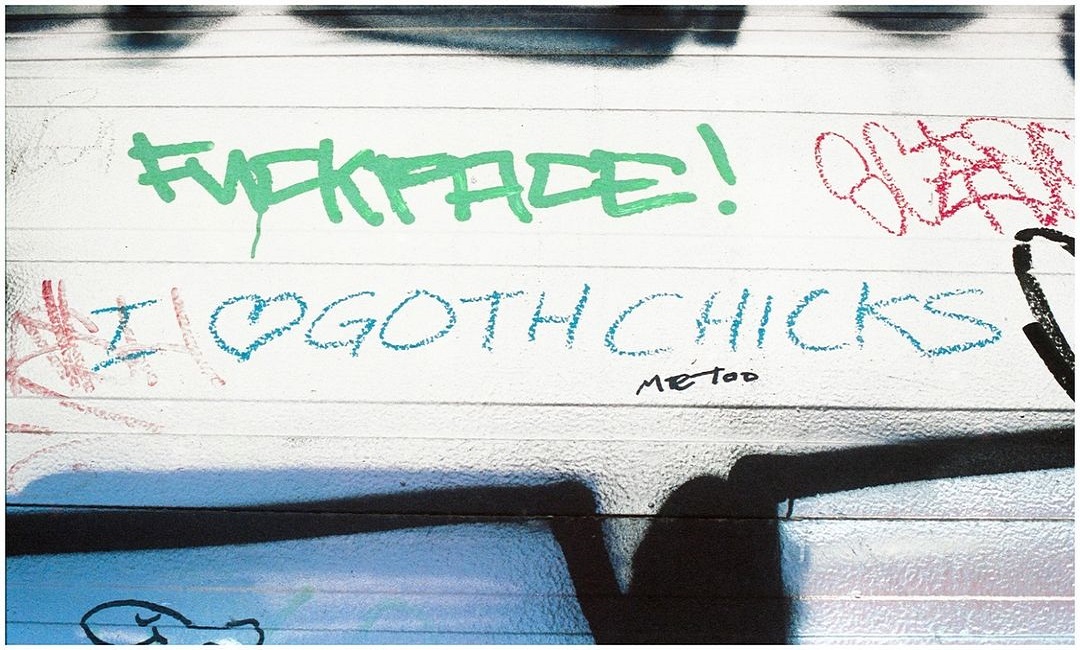 FUCKFACE!
I ♡ GOTH CHICKS
ME TOO